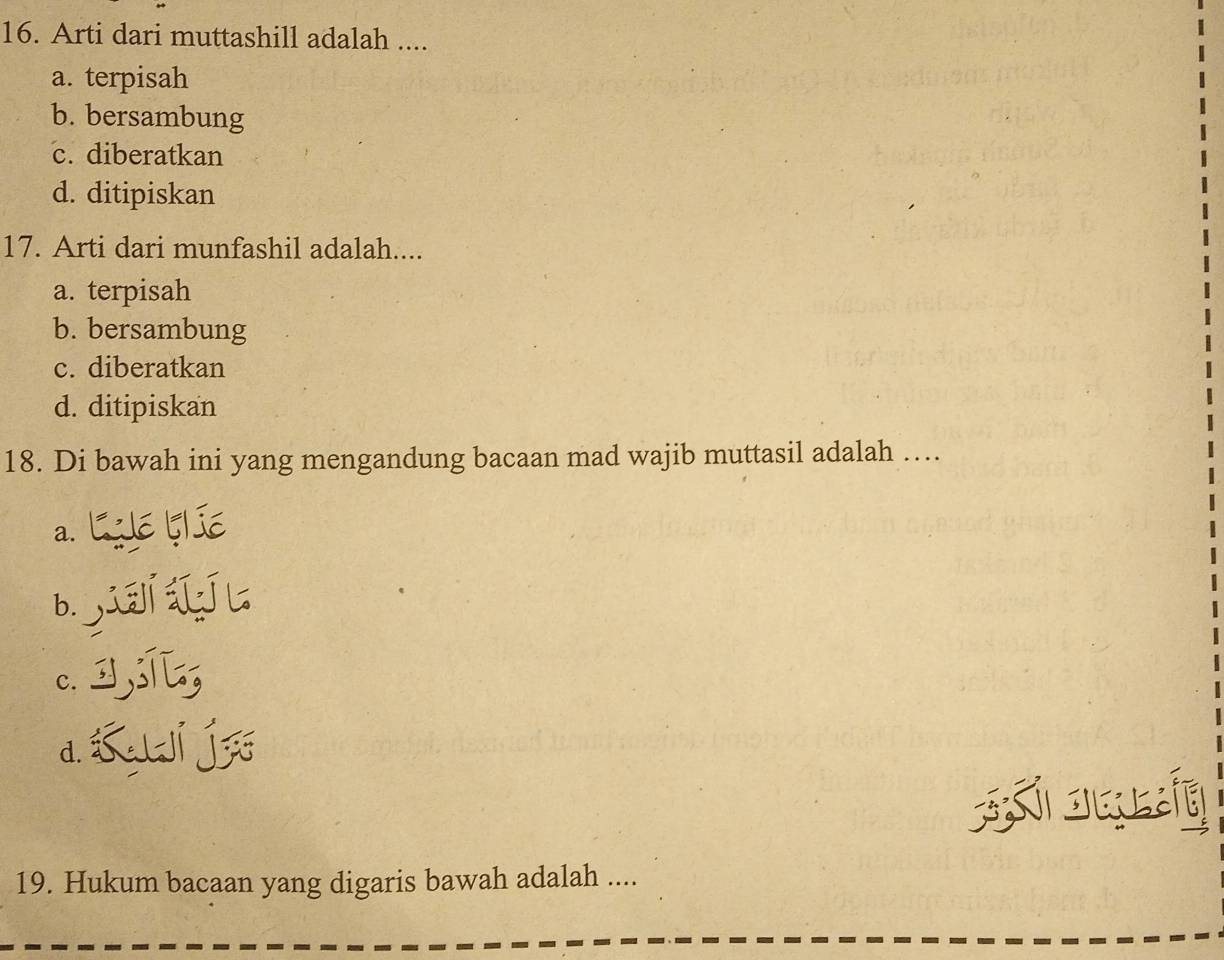 16. Arti dari muttashill adalah ....
a. terpisah
b. bersambung
c. diberatkan
d. ditipiskan
17. Arti dari munfashil adalah....
a. terpisah
b. bersambung
c. diberatkan
d. ditipiskan
18. Di bawah ini yang mengandung bacaan mad wajib muttasil adalah ....
a. عَذَابًا عَلِيْمًا
b. مَا لَيْلَةُ الْقَدْرِ
c. وَمَآ أَدْرٰىكَ
d. تَنَزَّلُ الْمَلٰئِكَةُ
إِنَّآ أَعْطَيْنَاكَ الْكَوْثَرَ
19. Hukum bacaan yang digaris bawah adalah ....